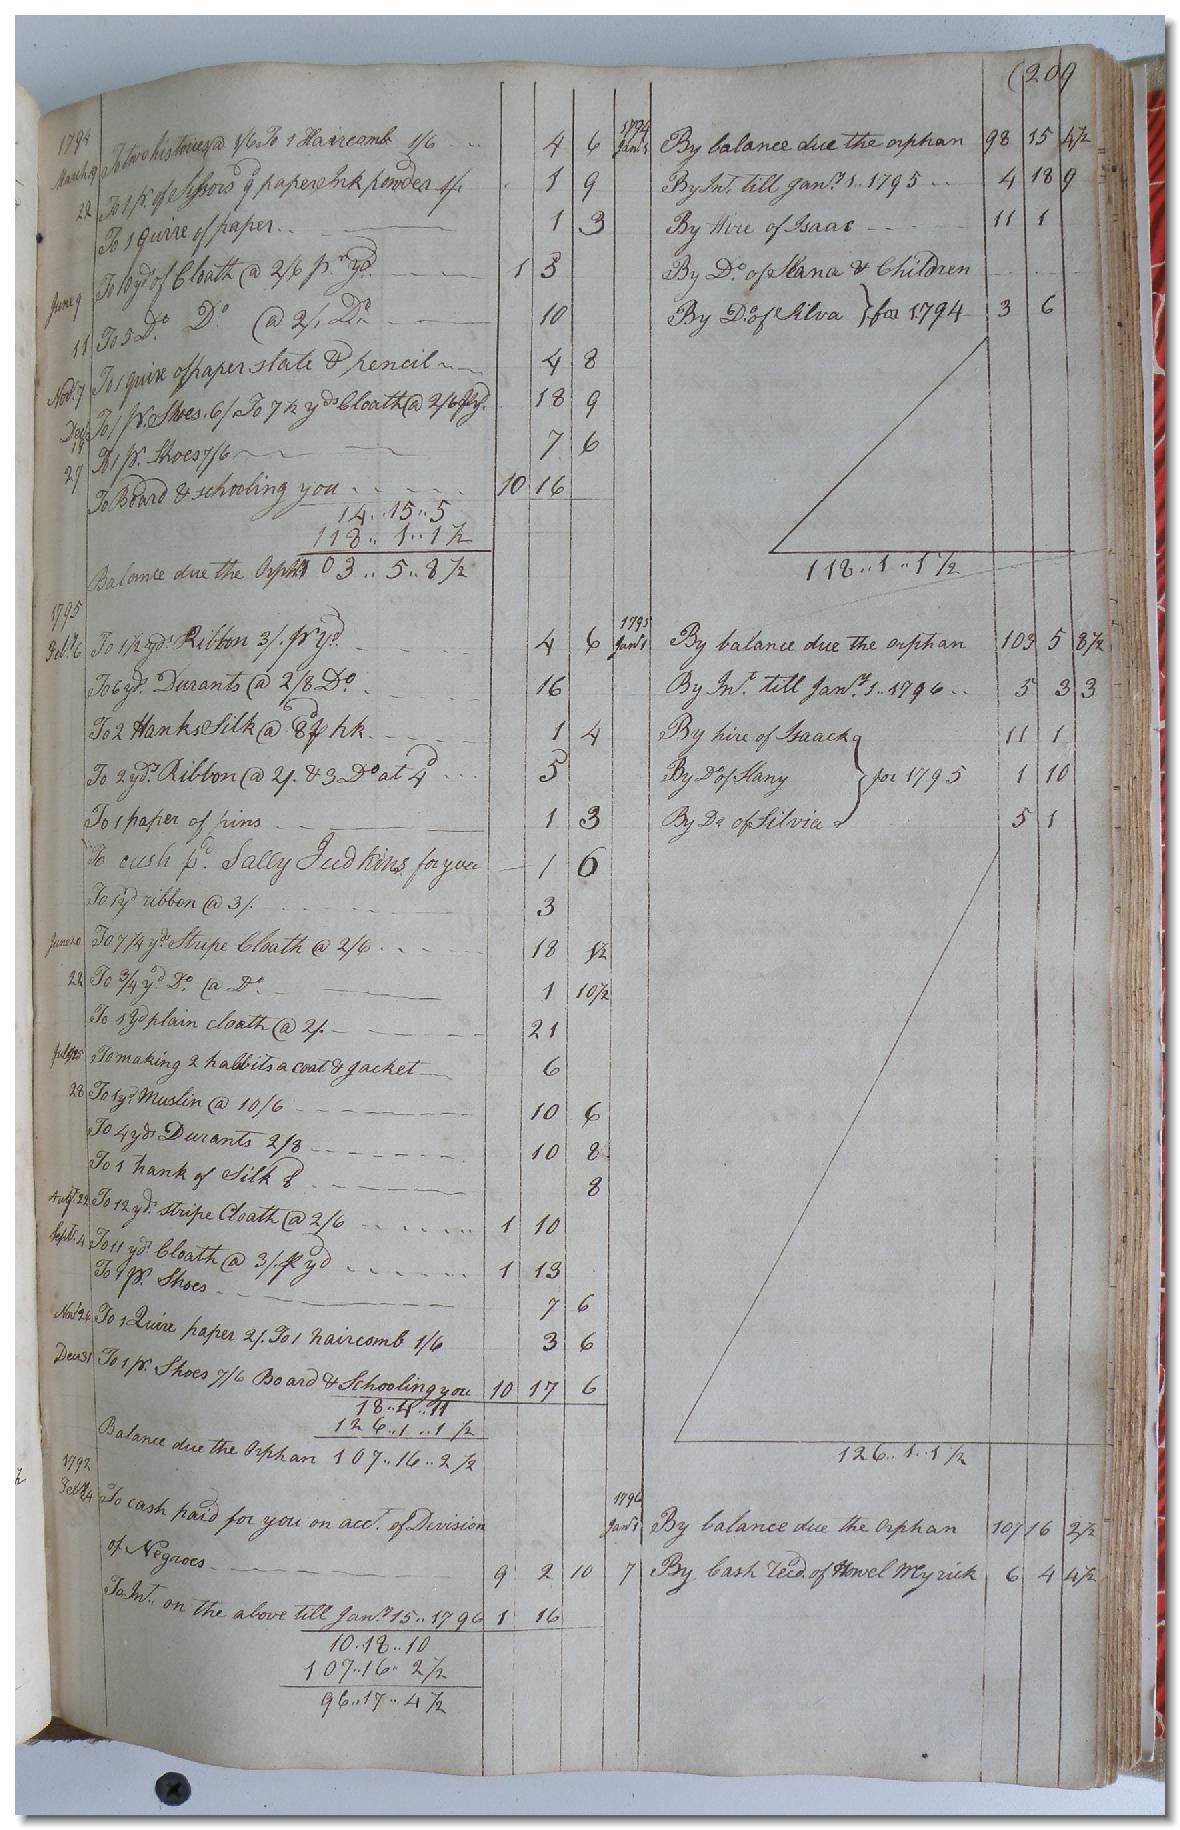 (209
1794
March 9 To two histories @ 1/6 To 1 Haircomb 1/6 4 6
To 1 pr. of Sissors 9d paper Ink powder 1/ 1 9
22 To 1 Quire of paper 1 3
To 10 yds of Cloath @ 2/6 pr yd 1 5
June 9 To 5 Do Do @ 2/. Do 10
11 To 1 quire of paper slate & pencil 4 8
Nov. 7 To 1 pr. Shoes 6/ To 7 1/2 yds Cloath @ 2/6 pr yd. 18 9
Decr 14 To 1 pr. Shoes 7/6 7 6
27 To Board & schooling you 10 16
14..15..5
118..1..1 1/2
Balance due the Orphn 103..5..8 1/2
1794
Jany 1 By balance due the orphan 98 15 4 1/2
By Int. till Jany. 1..1795 4 18 9
By Hire of Isaac 11 1
By Do of Hana & Children
By Do. of Silva } for 1794 3 6
118..1..1 1/2
1795
Feby. 6 To 1 1/2 yds Ribbon 3/. pr yd. 4 6
To 6 yds. Durants @ 2/8 Do. 16
To 2 Hanks Silk @ 8d pr hk. 1 4
To 2 yds. Ribbon @ 2/. & 3 Do at 4d 5
To 1 paper of pins 1 3
To cash pd. Sally Judkins for you 1 6
To 1 yd ribbon @ 3/. 3
June 10 To 7 1/4 yds Stripe Cloath @ 2/6 18 1 1/2
22 To 3/4 yd Do. @ Do. 1 10 1/2
To 1 yd plain cloath @ 2/. 21
July 20 To making 2 habbits a coat & jacket 6
28 To 1 yd. Muslin @ 10/6 10 6
To 4 yds Durants 2/8 10 8
To 1 hank of Silk 8d 8
Augt 22 To 12 yds. stripe Cloath @ 2/6 1 10
Septr. 4 To 11 yds. Cloath @ 3/. pr yd 1 13
To 1 pr. Shoes 7 6
Novr 24 To 1 Quire paper 2/. To 1 haircomb 1/6 3 6
Decr 31 To 1 pr. Shoes 7/6 Board & Schooling you 10 17 6
18..4..11
126..1..1 1/2
Balance due the Orphan 107..16..2 1/2
1795
Jany 1 By balance due the orphan 103 5 8 1/2
By Int. till Jany. 1..1796 5 3 3
By hire of Isaack 11 1
By Do of Hany } for 1795 1 10
By Do of Silvia 5 1
126..1..1 1/2
1792
24 To cash paid for you on acct. of Division
of Negroes 9 2 10
To Int. on the above till Jany. 15..1796 1 16
10.18..10
107..16..2 1/2
96..17..4 1/2
1796
Jany 1 By balance due the Orphan 107 16 2 1/2
7 By Cash recd. of Howel Myrick 6 4 4 1/2